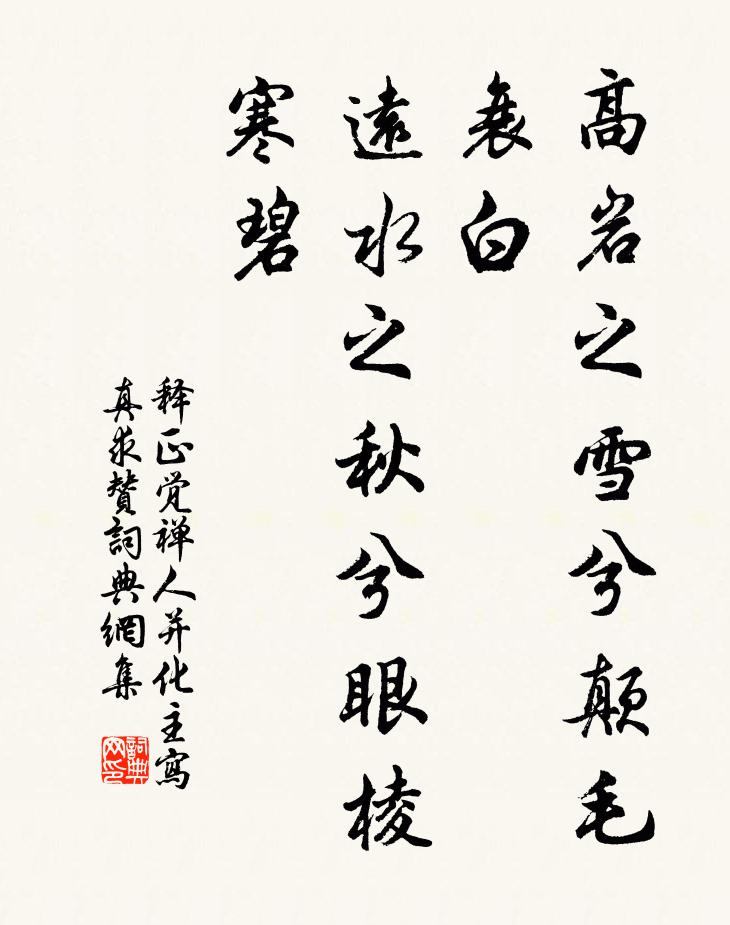 高岩之雪兮颠毛
衰白
遠水之秋兮眼棱
寒碧
释正觉禅人并化主寫
真求賛詞典網集
詞典
网印